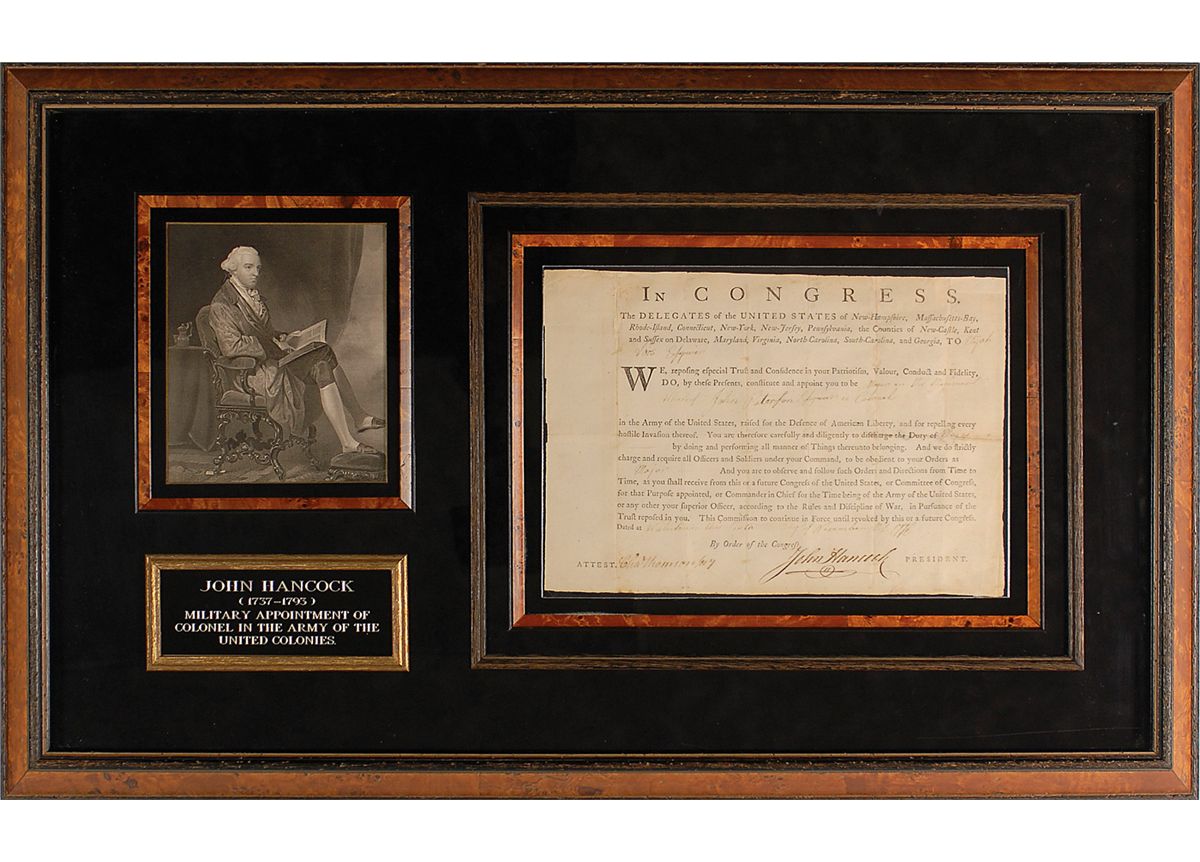 JOHN HANCOCK
(1737–1793)
MILITARY APPOINTMENT OF
COLONEL IN THE ARMY OF THE
UNITED COLONIES.
IN CONGRESS.
The DELEGATES of the UNITED STATES of New-Hampshire, Massachusetts-Bay,
Rhode-Island, Connecticut, New-York, New-Jersey, Pennsylvania, the Counties of New-Castle, Kent
and Sussex on Delaware, Maryland, Virginia, North-Carolina, South-Carolina, and Georgia, TO
WE, reposing especial Trust and Confidence in your Patriotism, Valour, Conduct and Fidelity,
DO, by these Presents, constitute and appoint you to be
in the Army of the United States, raised for the Defence of American Liberty, and for repelling every
hostile Invasion thereof. You are therefore carefully and diligently to discharge the Duty of
by doing and performing all manner of Things thereunto belonging. And we do strictly
charge and require all Officers and Soldiers under your Command, to be obedient to your Orders as
Major And you are to observe and follow such Orders and Directions from Time to
Time, as you shall receive from this or a future Congress of the United States, or Committee of Congress,
for that Purpose appointed, or Commander in Chief for the Time being of the Army of the United States,
or any other your superior Officer, according to the Rules and Discipline of War, in Pursuance of the
Trust reposed in you. This Commission to continue in Force until revoked by this or a future Congress.
Dated at
By Order of the Congress,
ATTEST. Cha Thomson secy John Hancock PRESIDENT.